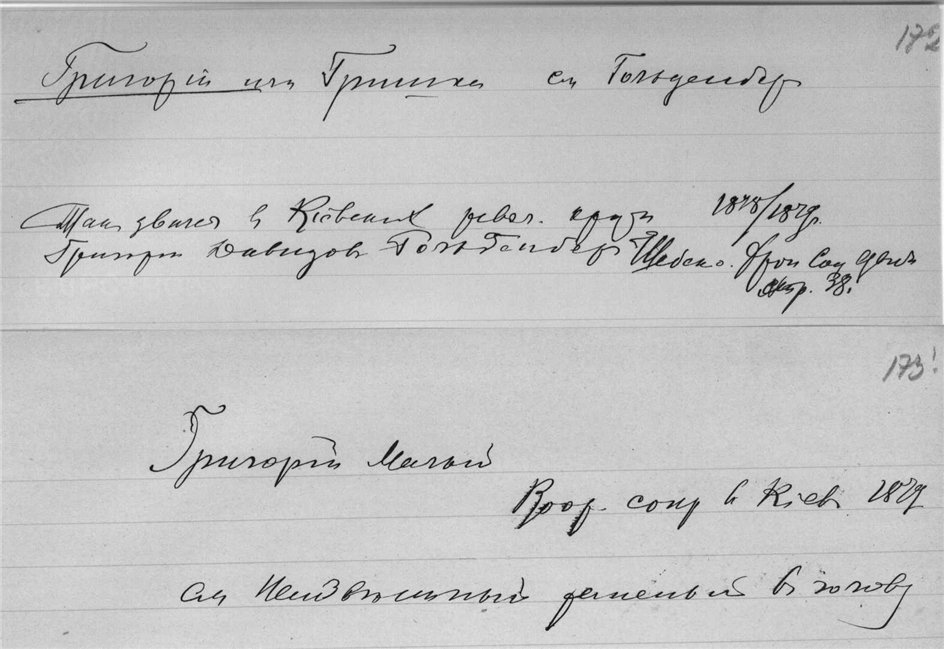 172
Григорій или Гришка см Гольденбер
Так звался в Кіевских рев. круж 1878/1879г.
Григорій Давидов Гольденбер Шебеко. Хрон Соц Движ
стр. 38.
173
Григорій Малый
Воор. сопр в Кіев 1879
см раненый в голову